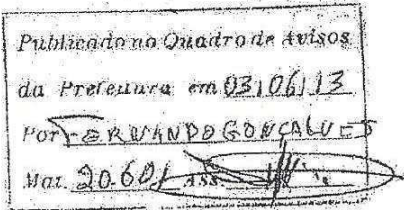 Publicado no Quadro de Avisos
da Prefeitura em 03/06/13
Por FERNANDO GONÇALVES
Mat. 20.601 Ass.